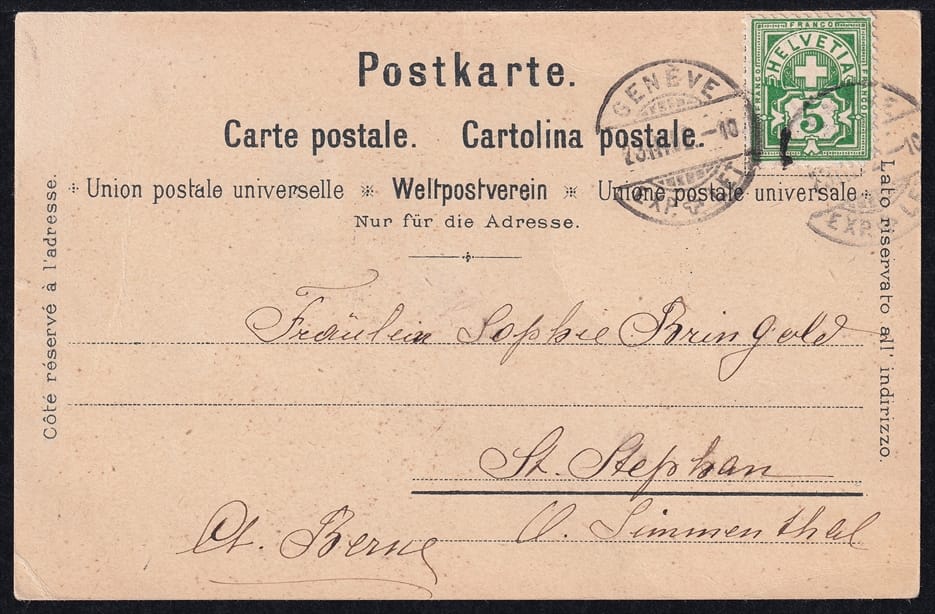 Postkarte.
Carte postale. Cartolina postale.
Union postale universelle Weltpostverein Unione postale universale
Nur für die Adresse.
Côté réservé à l'adresse.
Lato riservato all' indirizzo.
FRANCO
HELVETIA
FRANCO
FRANCO
5
GENÈVE
-10
EXP. LET
-10
EXP. LE
Fräulein Sophie Bringold
St. Stephan
Ct. Berne O. Simmenthal